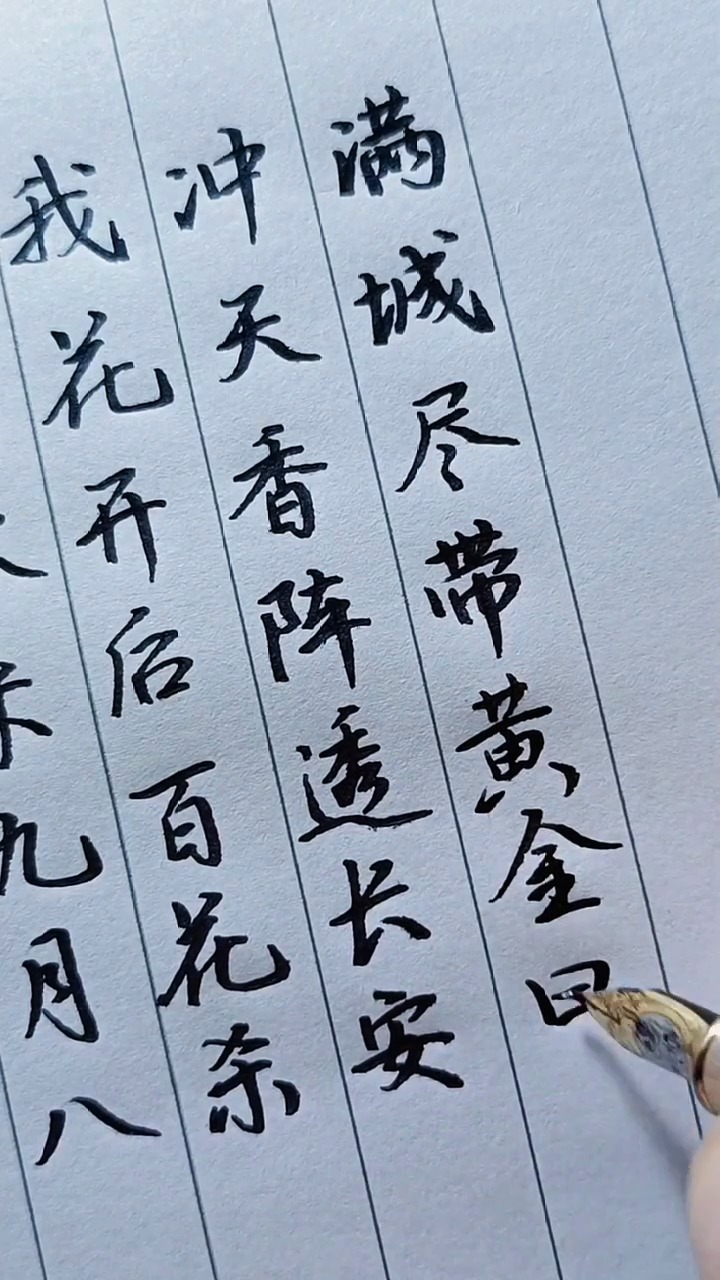 九月八
我花开后百花杀
冲天香阵透长安
满城尽带黄金